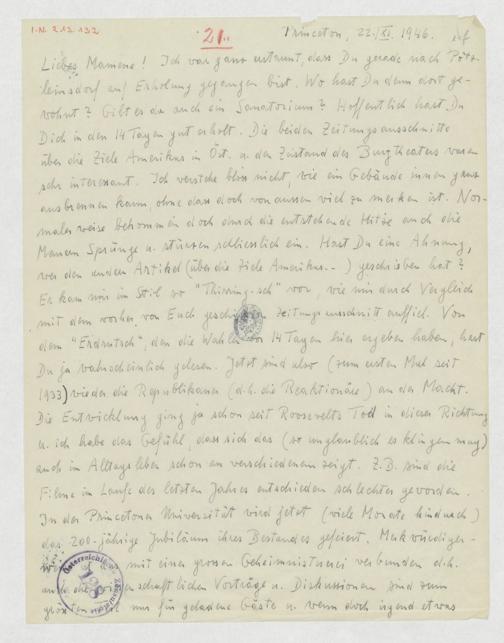 I.N. 213.132
21.
Princeton, 22./XI. 1946.
Liebes Mamene! Ich war ganz erstaunt, dass Du gerade nach Pötz-
leinsdorf auf Erholung gegangen bist. Wo hast Du denn dort ge-
wohnt? Gibt es da auch ein Sanatorium? Hoffentlich hast Du
Dich in den 14 Tagen gut erholt. Die beiden Zeitungsausschnitte
über die Ziele Amerikas in Öst. u. den Zustand des Burgtheaters waren
sehr interessant. Ich verstehe bloss nicht, wie ein Gebäude innen ganz
ausbrennen kann, ohne dass doch von aussen viel zu merken ist. Nor-
malerweise bekommen doch durch die entstehende Hitze auch die
Mauern Sprünge u. stürzen schliesslich ein. Hast Du eine Ahnung,
wer den anderen Artikel (über die Ziele Amerikas..) geschrieben hat?
Er kam mir im Stil so "Thirring-sch" vor, wie mir durch Vergleich
mit dem vorher von Euch Zeitungsausschnitt auffiel. Von
dem "Erdrutsch", den die Wahlen vor 14 Tagen hier ergeben haben, hast
Du ja wahrscheinlich gelesen. Jetzt sind also (zum ersten Mal seit
1933) wieder die Republikaner (d.h. die Reaktionäre) an der Macht.
Die Entwicklung ging ja schon seit Roosevelts Tod in dieser Richtung
u. ich habe das Gefühl, dass sich das (so unglaublich es klingen mag)
auch im Alltagsleben schon an verschiedenem zeigt. Z.B. sind die
Filme im Laufe des letzten Jahres entschieden schlechter geworden.
In der Princetoner Universität wird jetzt (viele Monate hindurch)
das 200-jährige Jubiläum ihres Bestandes gefeiert. Merkwürdiger-
mit einer grossen Geheimnistuerei verbunden d.h.
Vorträge u. Diskussionen sind zum
nur für geladene Gäste u. wenn doch irgend etwas
128